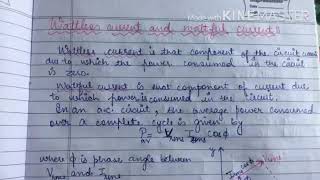 Wattless current and wattful current :
Made with KINEMASTER
Wattless current is that component of the circuit
due to which the power consumed in the circuit
is zero.
Wattful current is that component of current due
to which power is consumed in the circuit.
In an a.c. circuit, the average power consumed
over a complete cycle is given by
Pav = Vrms Irms cosϕ
where ϕ is phase angle between
Vrms and Irms
y